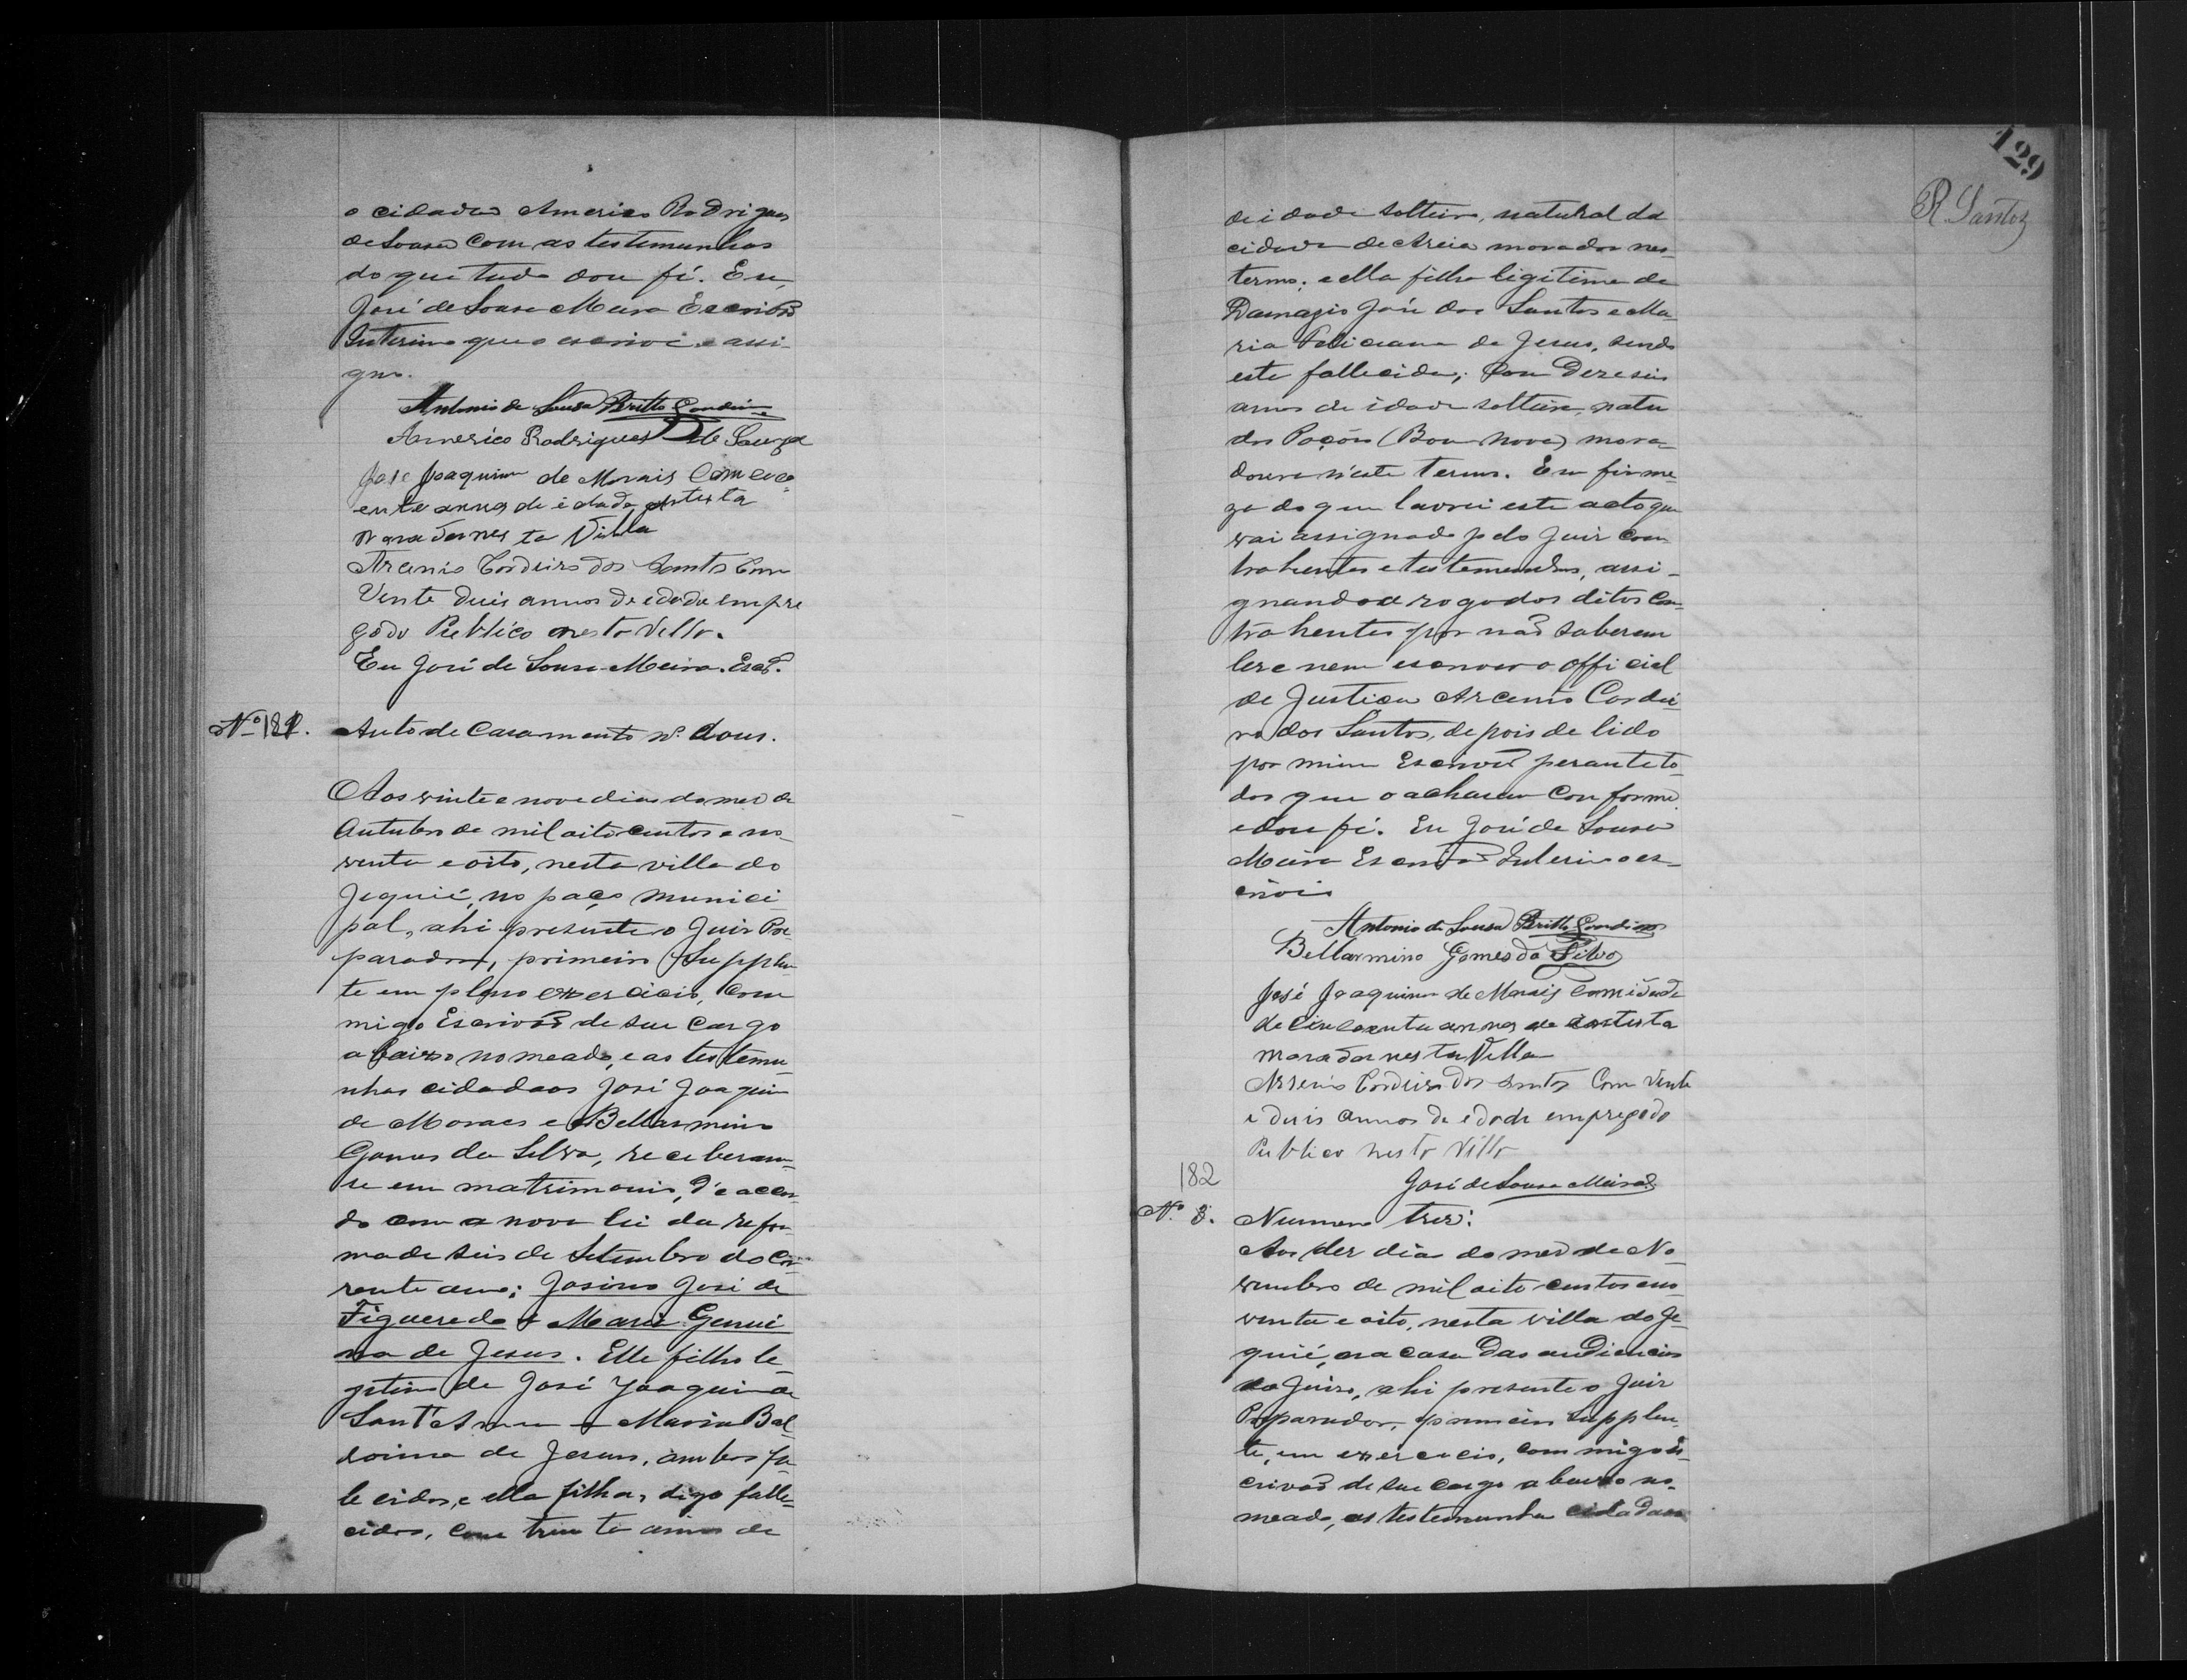 o cidadão Americo Rodrigues
de Sousa com as testemunhas
do que tudo dou fé. Eu,
José de Sousa Meira Escrivão
Interino que o escrivi e assi-
gno.
Antonio de Sousa Britto Gondim
Americo Rodrigues de Souza
José Joaquim de Morais Com cinco-
enta annos de idade artista
morador nesta Villa
Arcenio Cordeiro dos Santos Com
Vente duis annos de edade empre
gado Publico nesta Villa.
Eu José de Sousa Meira. Escr.
Nº 181. Auto de Casamento nº dous.
Aos vinte e nove dias do mes de
Outubro de mil oito centos e no-
venta e oito, nesta villa do
Jequié, no paço munici-
pal, ahi presente o Juiz Pre-
parador, primeiro Supplen-
te em pleno exercicio, com
migo Escrivão de seu Cargo
abaixo nomeado, e as testemu-
nhas cidadaos José Joaquim
de Moraes e Bellarmino
Gomes da Silva, receberam-
se em matrimonio, de accor-
do com a nova lei da refor-
ma de seis de Setembro do Cor-
rente anno; Josino José de
Figueredo e Maria Genui-
na de Jesus. Elle filho le-
gitimo de José Joaquim de
Sant'Anna e Maria Bal-
doina de Jesus, ambos fa-
lecidos, e ella filha, digo falle-
cidos, com trinta annos de
129
R. Santos
de idade solteiro, natural da
cidade de Areia morador nes-
termo; e ella filha ligitima de
Damazio José dos Santos e Ma-
ria Feliciana de Jesus, sendo
este fallecido; com deseseis
annos de idade solteira, natu
dos Poções (Boa Nova) mora-
doura n'este termo. Em firme-
za do que lavrei este acto que
vai assignado pelo Juiz con-
trahentes e testemunhas, assi-
gnando a rogo dos ditos Con-
trahentes por não saberem
ler e nem escrever o official
de Justiça Arcenio Cordei-
ro dos Santos, depois de lido
por mim Escrivão perante to-
dos que o acharão conforme
e dou fé. Eu José de Sousa
Meira Escrivão Interino o es-
crivi
Antonio de Sousa Britto Gondim
Bellarmino Gomes da Silva
José Joaquim de Morais Com idade
de Cincoenta annos de artista
morador nesta Villa
Arsenio Cordeiro dos Santos Com Vente
e duis annos de edade empregado
Publico nesta Villa
José de Sousa Meira
182
Nº 3. Numero tres:
Aos dez dias do mes de No-
vembro de mil oito centos e no-
venta e oito, nesta villa do Je-
quié, na casa das audiencias
do Juiso, ahi presente o Juiz
Preparador, primeiro Supplen-
te, em exercicio, commigo Es-
crivão de seu cargo abaixo no-
meado, as testemunhas cidadãos